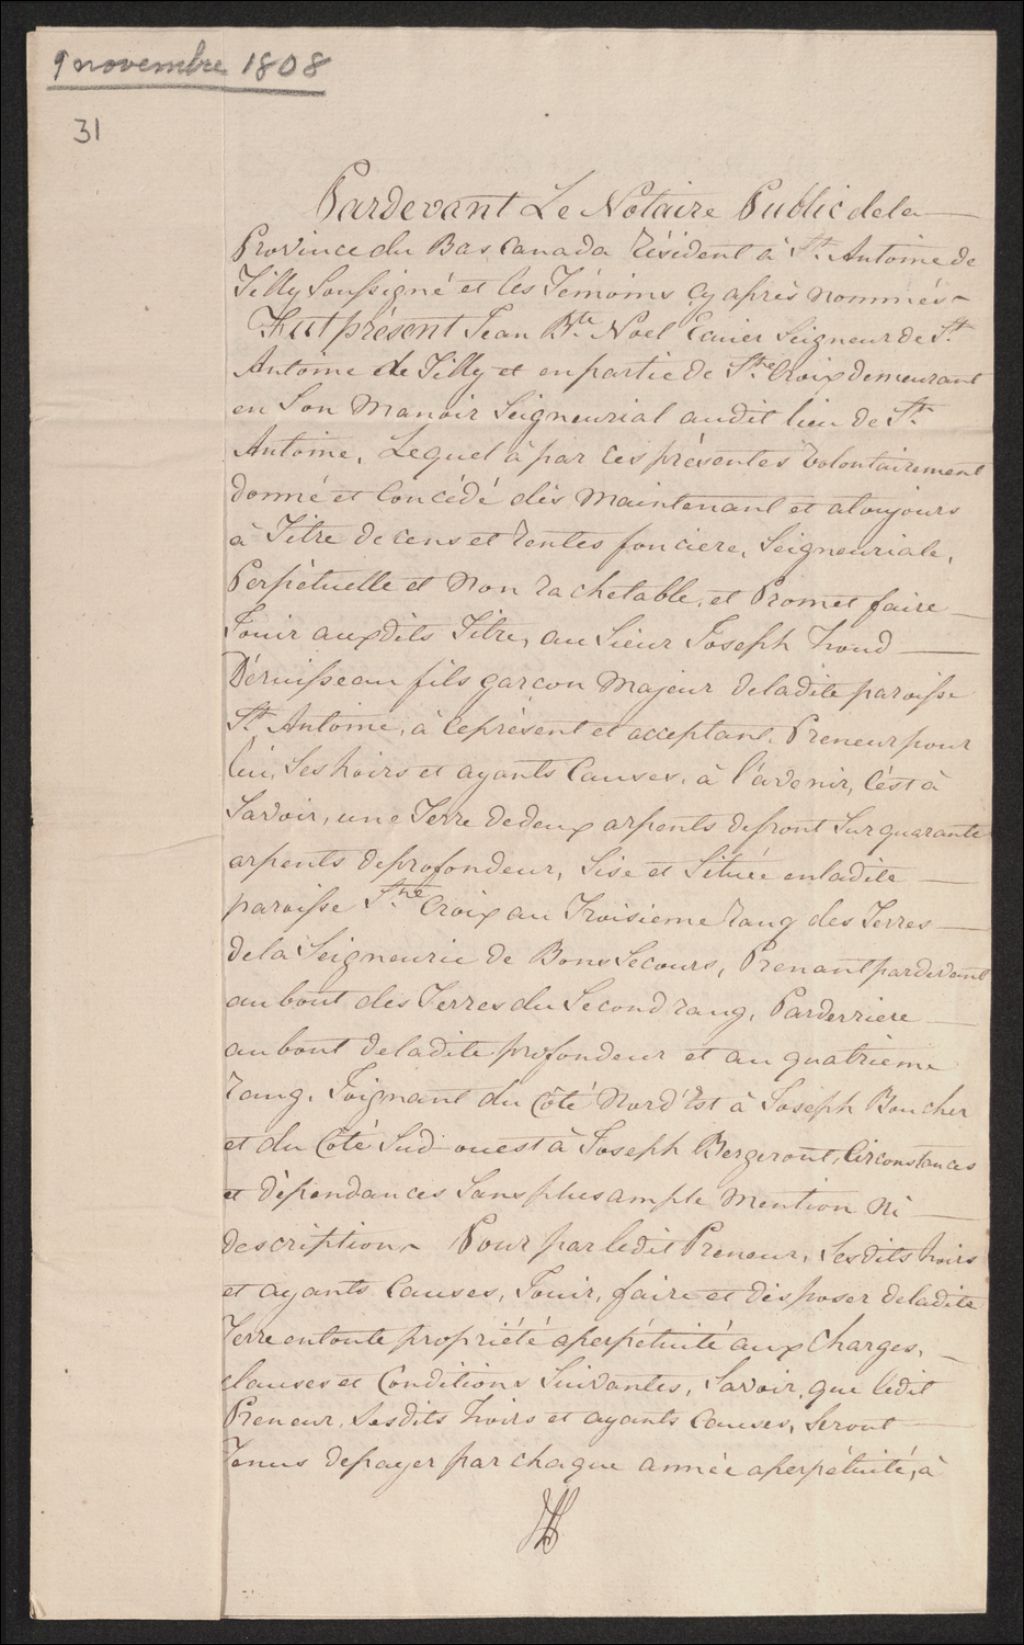 9 novembre 1808
31
Pardevant Le Notaire Public dela
Province du Bas Canada résident à St. Antoine de
Tilly Soussigné et les Témoins Cy après nommés
Fut présent Jean Bte. Noel Ecuier Seigneur de St.
Antoine de Tilly et en partie de Ste. Croix demeurant
en Son Manoir Seigneurial audit lieu de St.
Antoine, Lequel à par ces présentes volontairement
donné et Concédé dès Maintenant et atoujours
à Titre de cens et rentes fonciere, Seigneuriale,
Perpétuelle et Non rachetable, et Promet faire
Jouir auxdits Titre, au Sieur Joseph houd
Déruisseau fils garcon Majeur deladite paroisse
St. Antoine, à Ceprésent et acceptant, Preneur pour
lui, Ses hoirs et ayants Causes, à l'avenir, C'est à
Savoir, une Terre dedeux arpents defront Sur quarante
arpents deprofondeur, Sise et Située enladite
paroisse Ste. Croix au Troisieme rang des Terres
dela Seigneurie de Bons Secours, Prenant pardevant
au bout des Terres du Second rang, Parderriere
au bout deladite profondeur et au quatrieme
rang, Joignant du Côté Nord'Est à Joseph Boucher
et du Côté Sud-ouest à Joseph Bergeront, Circonstances
et dépendances Sans plus ample Mention Ni
description Pour par ledit Preneur, Sesdits hoirs
et ayants Causes, Jouir, faire et disposer deladite
Terre entoute propriété aperpétuité aux Charges,
clauses et Conditions Suivantes, Savoir, que ledit
Preneur, Sesdits hoirs et ayants Causes, Seront
Tenus depayer par chaque année aperpétuité, à